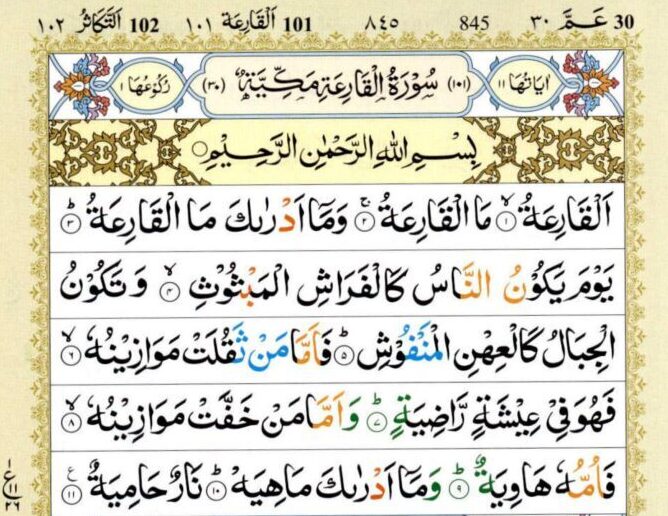 30 عَمَّ ٣٠ 845 ٨٤٥ 101 اَلْقَارِعَة ١٠١ 102 اَلتَّكَاثُر ١٠٢
اٰيَاتُهَا ١١ (١٠١) سُوْرَةُ الْقَارِعَةِ مَكِّيَّةٌ (٣٠) رُكُوْعُهَا ١
بِسْمِ اللّٰهِ الرَّحْمٰنِ الرَّحِيْمِ
اَلْقَارِعَةُ ۙ﴿١﴾ مَا الْقَارِعَةُ ۚ﴿٢﴾ وَمَاۤ اَدْرٰىكَ مَا الْقَارِعَةُ ؕ﴿٣﴾
يَوْمَ يَكُوْنُ النَّاسُ كَالْفَرَاشِ الْمَبْثُوْثِ ۙ﴿٤﴾ وَتَكُوْنُ
الْجِبَالُ كَالْعِهْنِ الْمَنْفُوْشِ ؕ﴿٥﴾ فَاَمَّا مَنْ ثَقُلَتْ مَوَازِيْنُهٗ ۙ﴿٦﴾
فَهُوَ فِيْ عِيْشَةٍ رَّاضِيَةٍ ؕ﴿٧﴾ وَاَمَّا مَنْ خَفَّتْ مَوَازِيْنُهٗ ۙ﴿٨﴾
فَاُمُّهٗ هَاوِيَةٌ ؕ﴿٩﴾ وَمَاۤ اَدْرٰىكَ مَا هِيَهْ ؕ﴿١٠﴾ نَارٌ حَامِيَةٌ ﴿١١﴾ ع
ع
١١
٢٦